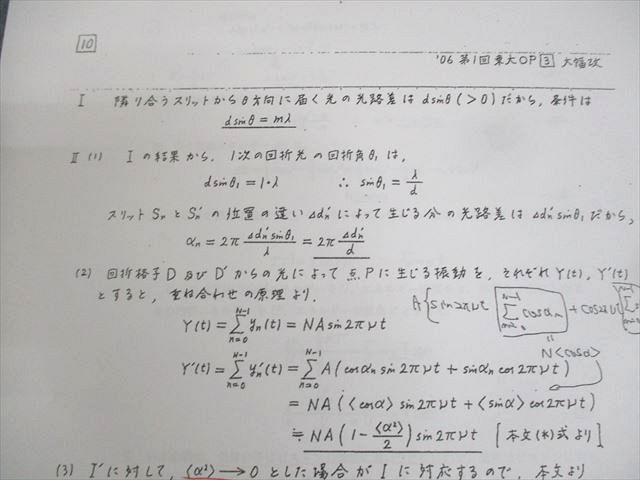 10
'06 第1回東大OP 3 大幅改
I 隣り合うスリットからθ方向に届く光の光路差は d sinθ (>0) だから, 条件は
d sinθ = mλ
II (1) Iの結果から, 1次の回折光の回折角θ₁は,
d sinθ₁ = 1・λ ∴ sinθ₁ = λ/d
スリット Sₙ と Sₙ' の位置の違い Δdₙ' によって生じる分の光路差は Δdₙ' sinθ₁ だから,
αₙ = 2π Δdₙ' sinθ₁/λ = 2π Δdₙ'/d
(2) 回折格子 D 及び D' からの光によって点Pに生じる振動を, それぞれ Y(t), Y'(t)
とすると, 重ね合わせの原理より,
A{sin2πνt Σ_{n=0}^{N-1} cosαₙ + cos2πνt Σ
Y(t) = Σ_{n=0}^{N-1} yₙ(t) = NA sin2πνt
= N<cosα>
Y'(t) = Σ_{n=0}^{N-1} yₙ'(t) = Σ_{n=0}^{N-1} A(cosαₙ sin2πνt + sinαₙ cos2πνt)
= NA(<cosα> sin2πνt + <sinα> cos2πνt)
≒ NA(1 - <α²>/2) sin2πνt [本文(*)式より]
(3) I'に対して, <α²> → 0 とした場合が I に対応するので, 本文より